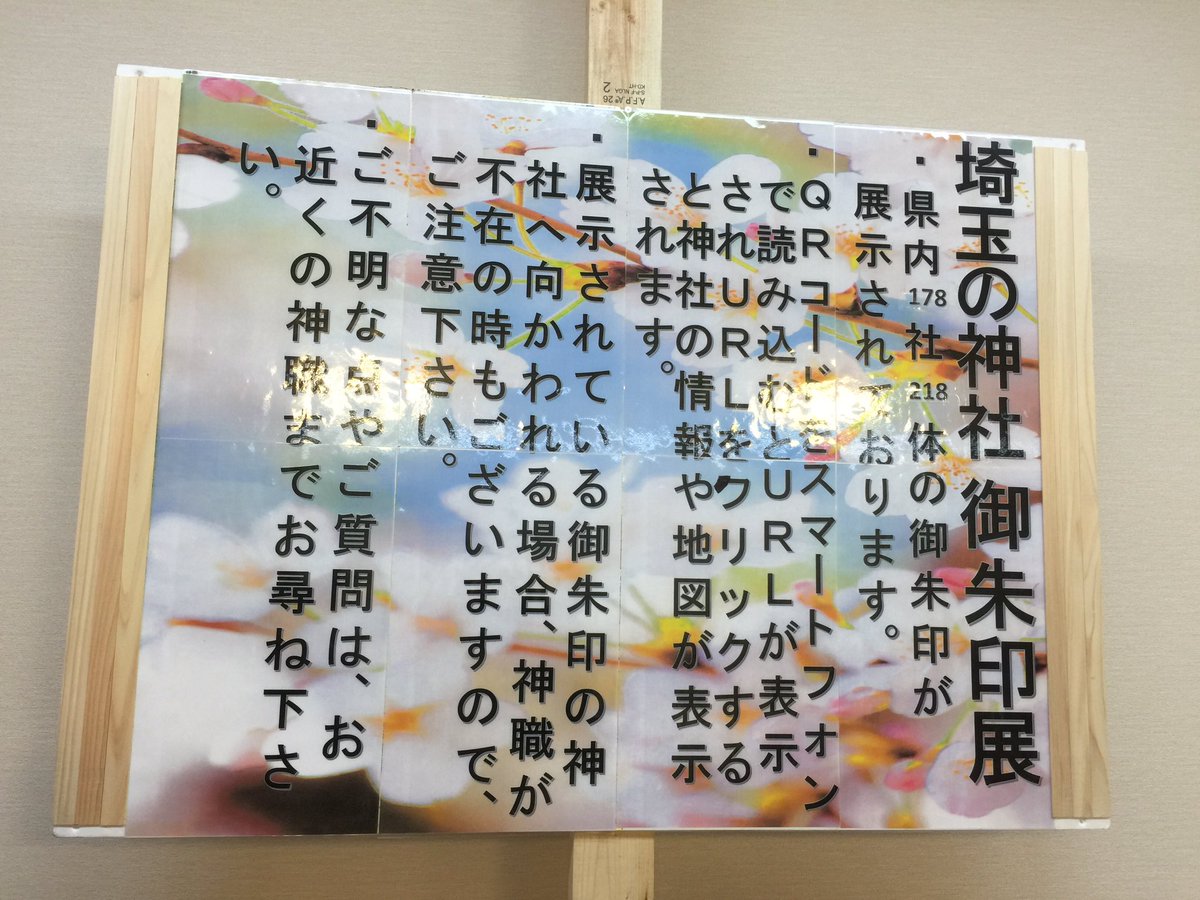 埼玉の神社 御朱印展
・県内178社218体の御朱印が
展示されております。
・QRコードをスマートフォン
で読み込むとURLが表示
されURLをクリックする
と神社の情報や地図が表示
されます。
・展示されている御朱印の神
社へ向かわれる場合、神職が
不在の時もございますので、
ご注意下さい。
・ご不明な点やご質問は、お
近くの神職までお尋ね下さ
い。
A.F.P.A® 26
S-P-F NLGA
KD-HT
2